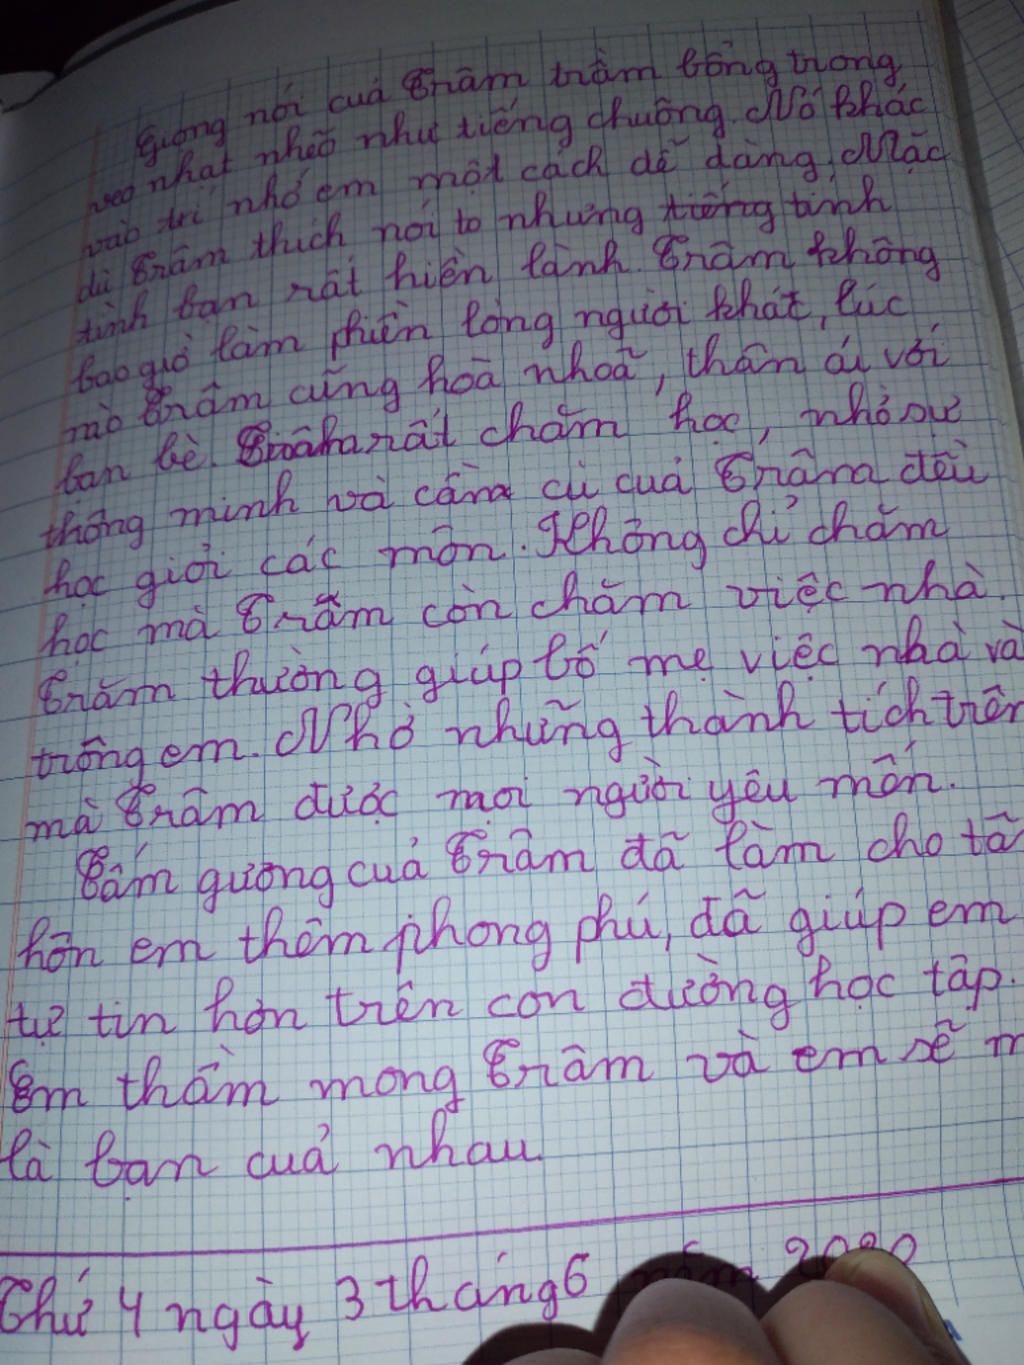 Giọng nói cuả Trâm trầm bổng trong
veo nhạt nhẽo như tiếng chuông. Nó khắc
vào trí nhớ em một cách dễ dàng. Mặc
dù Trâm thích nói to nhưng tiếng tính
tình bạn rất hiền lành. Trâm không
bao giờ làm phiền lòng người khát, lúc
nào Trâm cũng hoà nhoã, thân ái với
bạn bè. Trâm rất chăm học, nhờ sự
thông minh và cần cù cuả Trâm đều
học giỏi các môn. Không chỉ chăm
học mà Trâm còn chăm việc nhà.
Trâm thường giúp bố mẹ việc nhà và
trông em. Nhờ những thành tích trên
mà Trâm được mọi người yêu mến.
Tấm gương cuả Trâm đã làm cho tâ
hồn em thêm phong phú, đã giúp em
tự tin hơn trên con đường học tập.
Em thầm mong Trâm và em sẽ m
là bạn cuả nhau.
Thứ 4 ngày 3 tháng 6 năm 2020